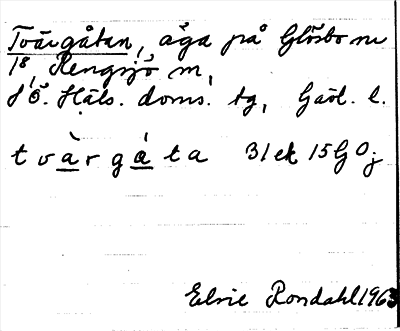 Tvärgåtan, åga på Glösbo nr
1⁸, Rengsjö sn,
S Ö. Häls. doms. tg, Gävl. l.
tvàrgáta 31 ek 15G 0j
Elsie Rondahl 1963